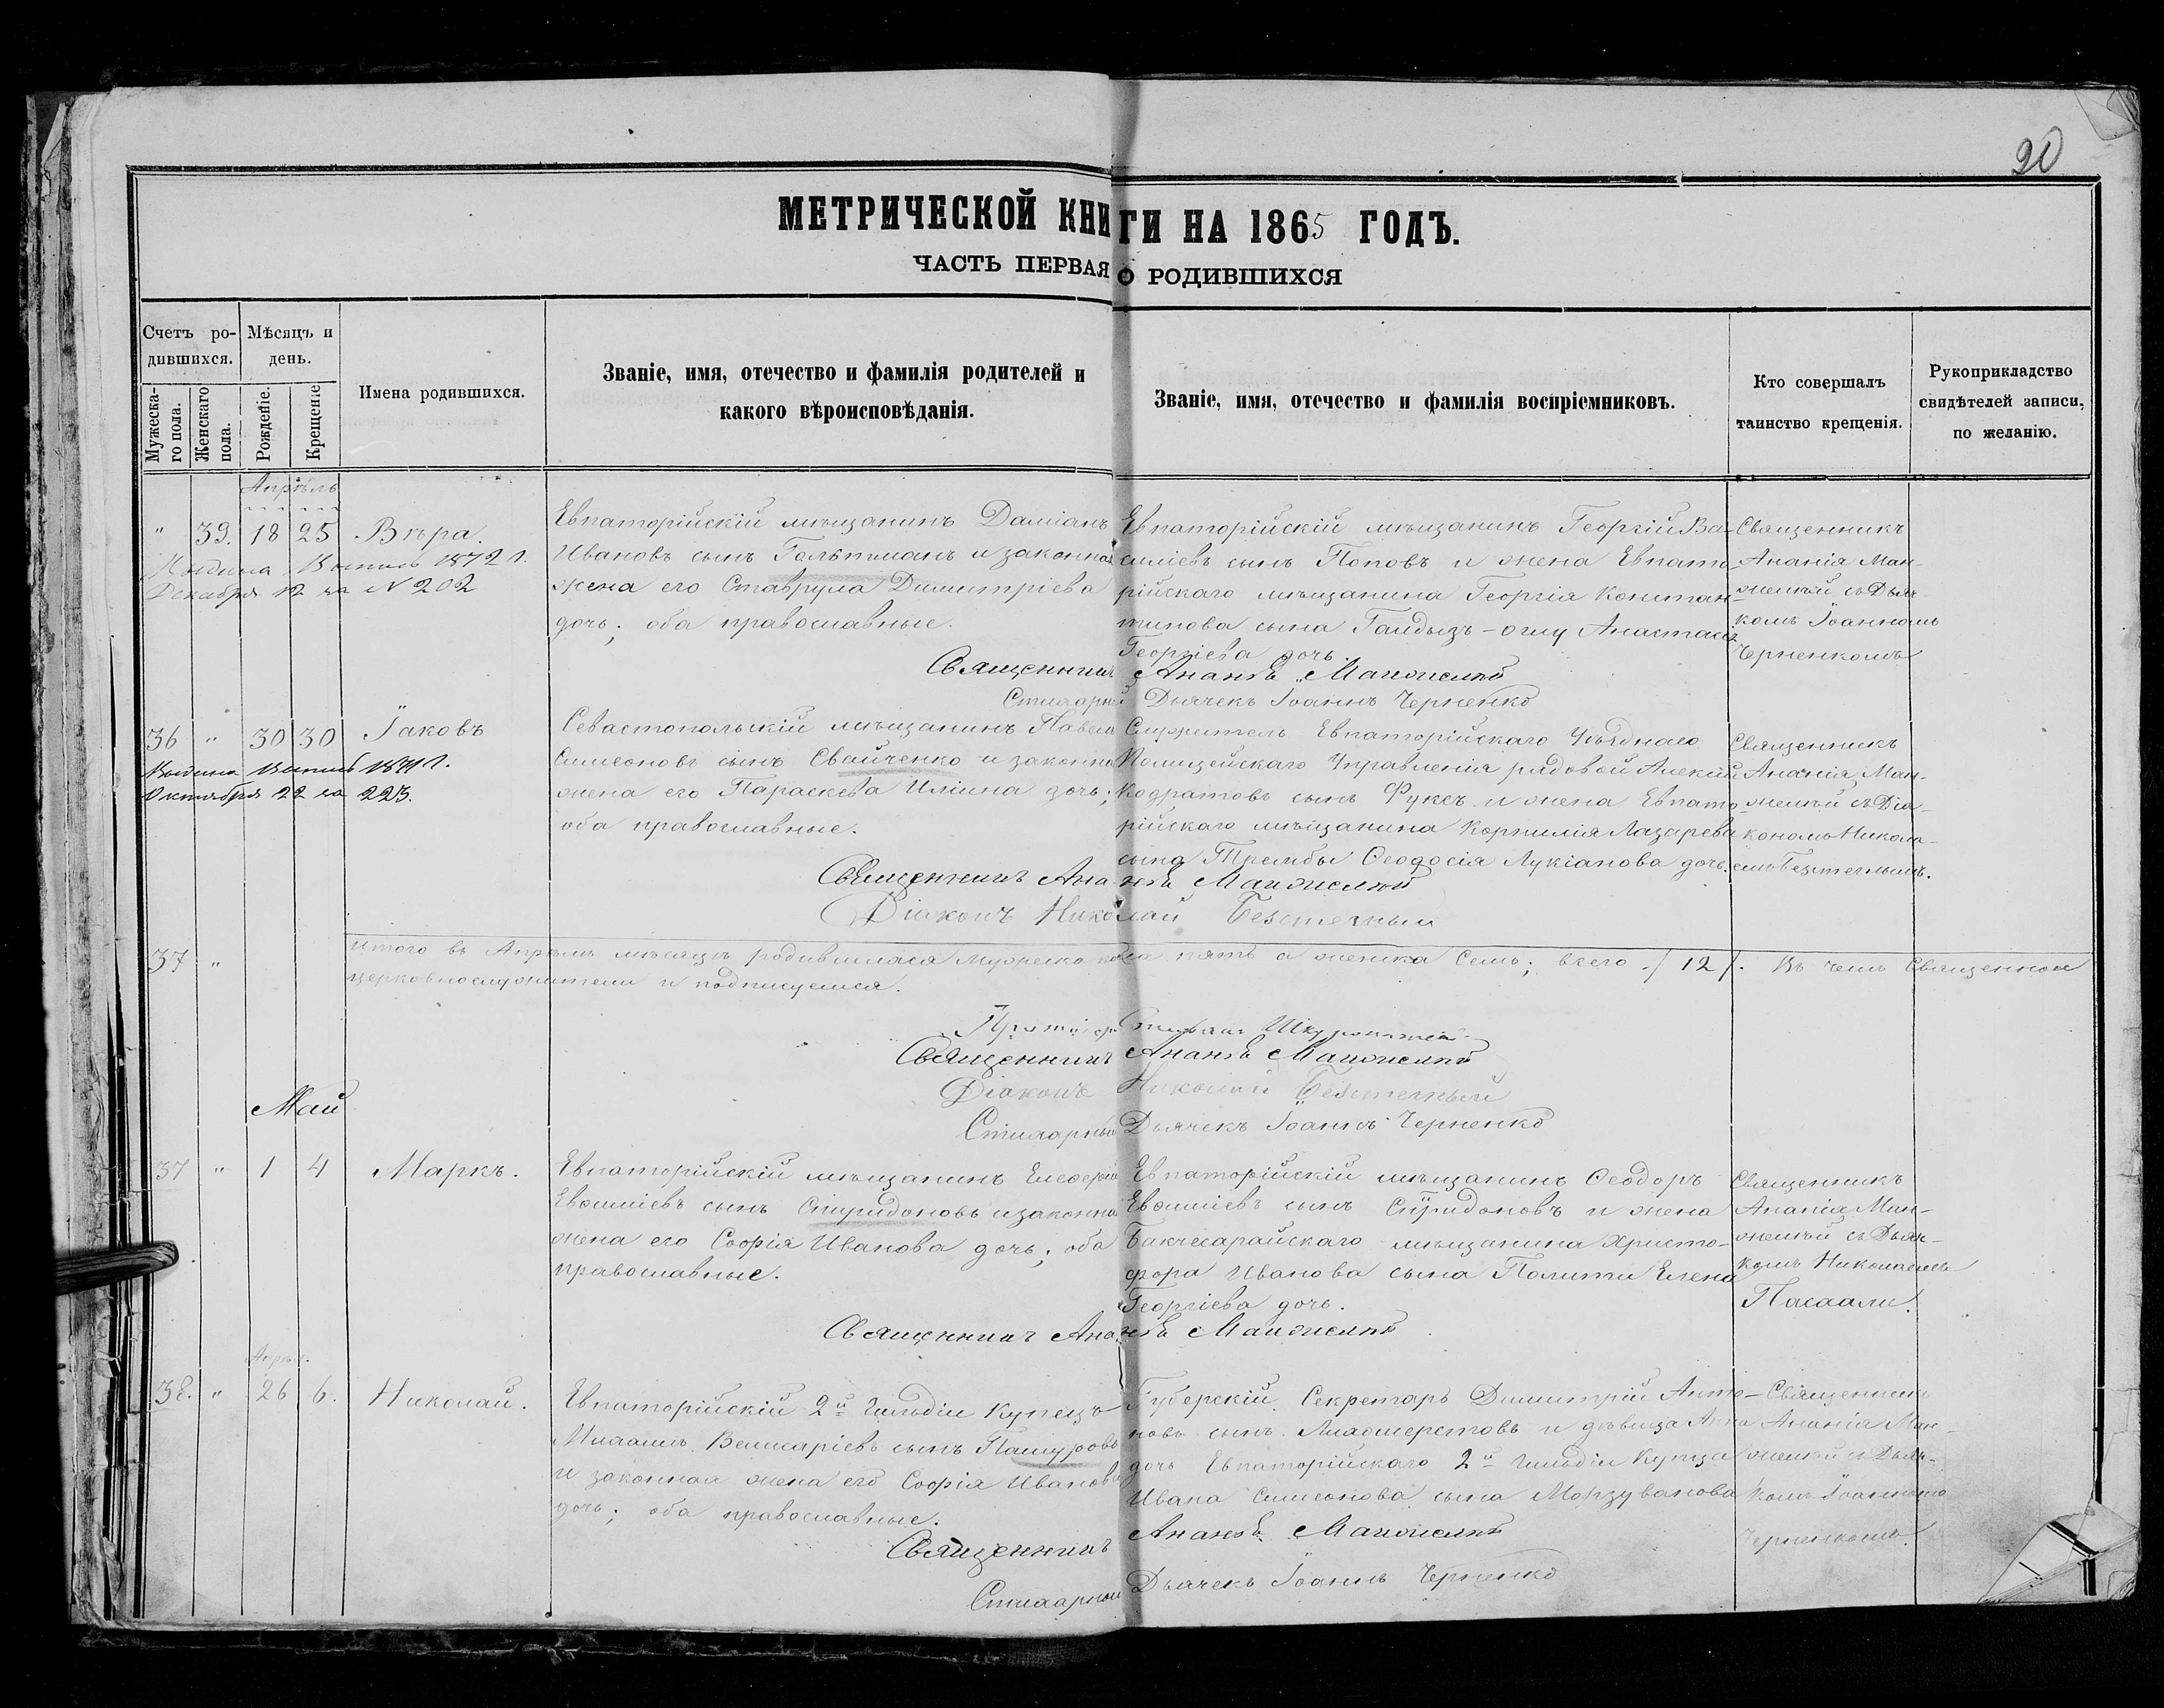 20
МЕТРИЧЕСКОЙ КНИГИ НА 1865 ГОДЪ.
ЧАСТЬ ПЕРВАЯ О РОДИВШИХСЯ
Счетъ ро-
дившихся.
Мужеска-
го пола.
Женскаго
пола.
Мѣсяцъ и
день.
Рожденіе.
Крещеніе
Имена родившихся.
Званіе, имя, отечество и фамилія родителей и
какого вѣроисповѣданія.
Званіе, имя, отечество и фамилія воспріемниковъ.
Кто совершалъ
таинство крещенія.
Рукоприкладство
свидѣтелей записи,
по желанію.
Апрѣль
" 39. 18 25 Вѣра.
Выдана Выпись 1872 г.
Декабря 12 за N 202
Евпаторійскій мѣщанинъ Даміанъ
Ивановъ сынъ и законная
жена его Ставрула Димитріева
дочь; оба православные.
Евпаторійскій мѣщанинъ Георгій Ва-
силіевъ сынъ Поповъ и жена Евпато-
рійскаго мѣщанина Георгія Констан-
тинова сына Гайдызъ-оглу Анастасія
Георгіева дочь.
Священникъ
Ананія Ман-
желей съ Дьяч-
комъ Іоанномъ
Черненкомъ
Священникъ Ананія
Стихарный Дьячекъ Іоаннъ Черненко
36 " 30 30 Іаковъ
Выдана Выпись 1871 г.
Октября 22 за 223.
Севастопольскій мѣщанинъ Павелъ
Симеоновъ сынъ Свайченко и законная
жена его Параскева Иліина дочь;
оба православные.
Служитель Евпаторійскаго Уѣзднаго
Полицейскаго Управленія рядовой Алексій
Кодратовъ сынъ Фуксъ и жена Евпато-
рійскаго мѣщанина Корнилія Лазарева
сына Трембы Ѳеодосія Лукіанова дочь.
Священникъ
Ананія Ман-
желей съ Діа-
кономъ Никола-
емъ
Священникъ Ананія
Діаконъ Николай
37 "
Итого въ Апрѣлѣ мѣсяцѣ родившихся мужеска пола пять а женска семь; всего /12/. Въ чемъ Священно и
церковнослужители и подписуемся.
Протоіерей Стефанъ
Священникъ Ананія
Діаконъ Николай
Стихарный Дьячекъ Іоаннъ Черненко
Май
37 " 1 4 Маркъ.
Евпаторійскій мѣщанинъ
сынъ Спиридоновъ и законная
жена его Софія Иванова дочь; оба
православные.
Евпаторійскій мѣщанинъ Ѳеодоръ
сынъ Спиридоновъ и жена
Бакчесарайскаго мѣщанина Христо-
фора Иванова сына Полити Елена
Георгіева дочь.
Священникъ
Ананія Ман-
желей съ Дьяч-
комъ Николаемъ
Пасхали.
Священникъ Ананія
Апрѣл.
38. " 26 6. Николай.
Евпаторійскій 2й гильдіи купецъ
Михаилъ Велисаріевъ сынъ Пашуровъ
и законная жена его Софія Иванова
дочь; оба православные.
Губерскій Секретарь Димитрій Анто-
новъ сынъ и дѣвица Анна
дочь Евпаторійскаго 2й гильдіи Купца
Ивана Симеонова сына Морзуванова
Священникъ
Ананія Ман-
желей съ Дьяч-
комъ Іоанномъ
Черненкомъ.
Священникъ Ананія
Стихарный Дьячекъ Іоаннъ Черненко